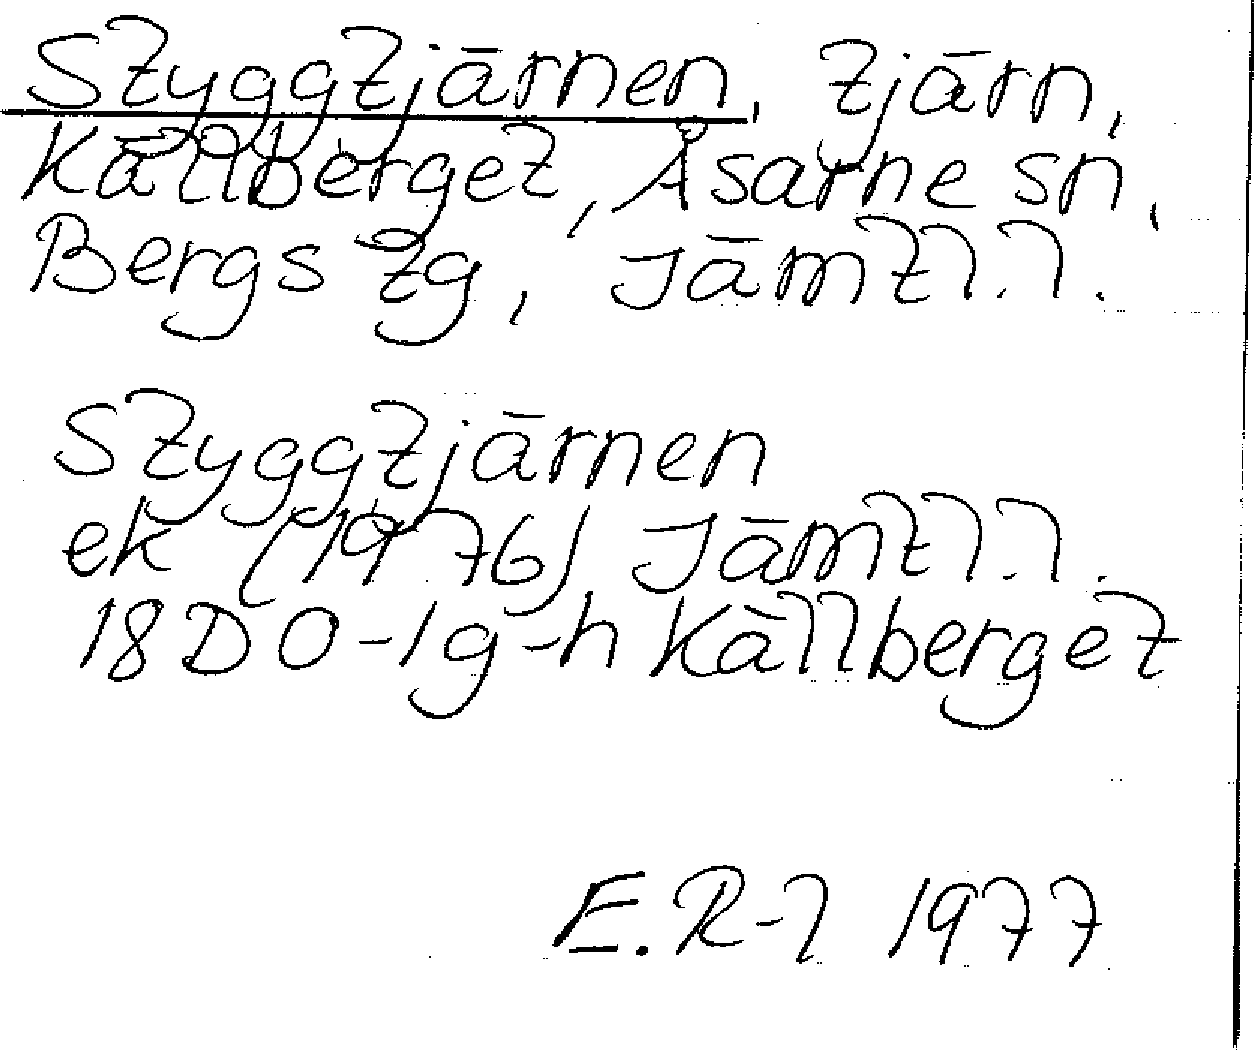 Styggtjärnen, tjärn,
Källberget, Åsarne sn,
Bergs tg, Jämtl.l.
Styggtjärnen
ek (1976) Jämtl.l.
18D0-1g-h Källberget
E.R-l 1977